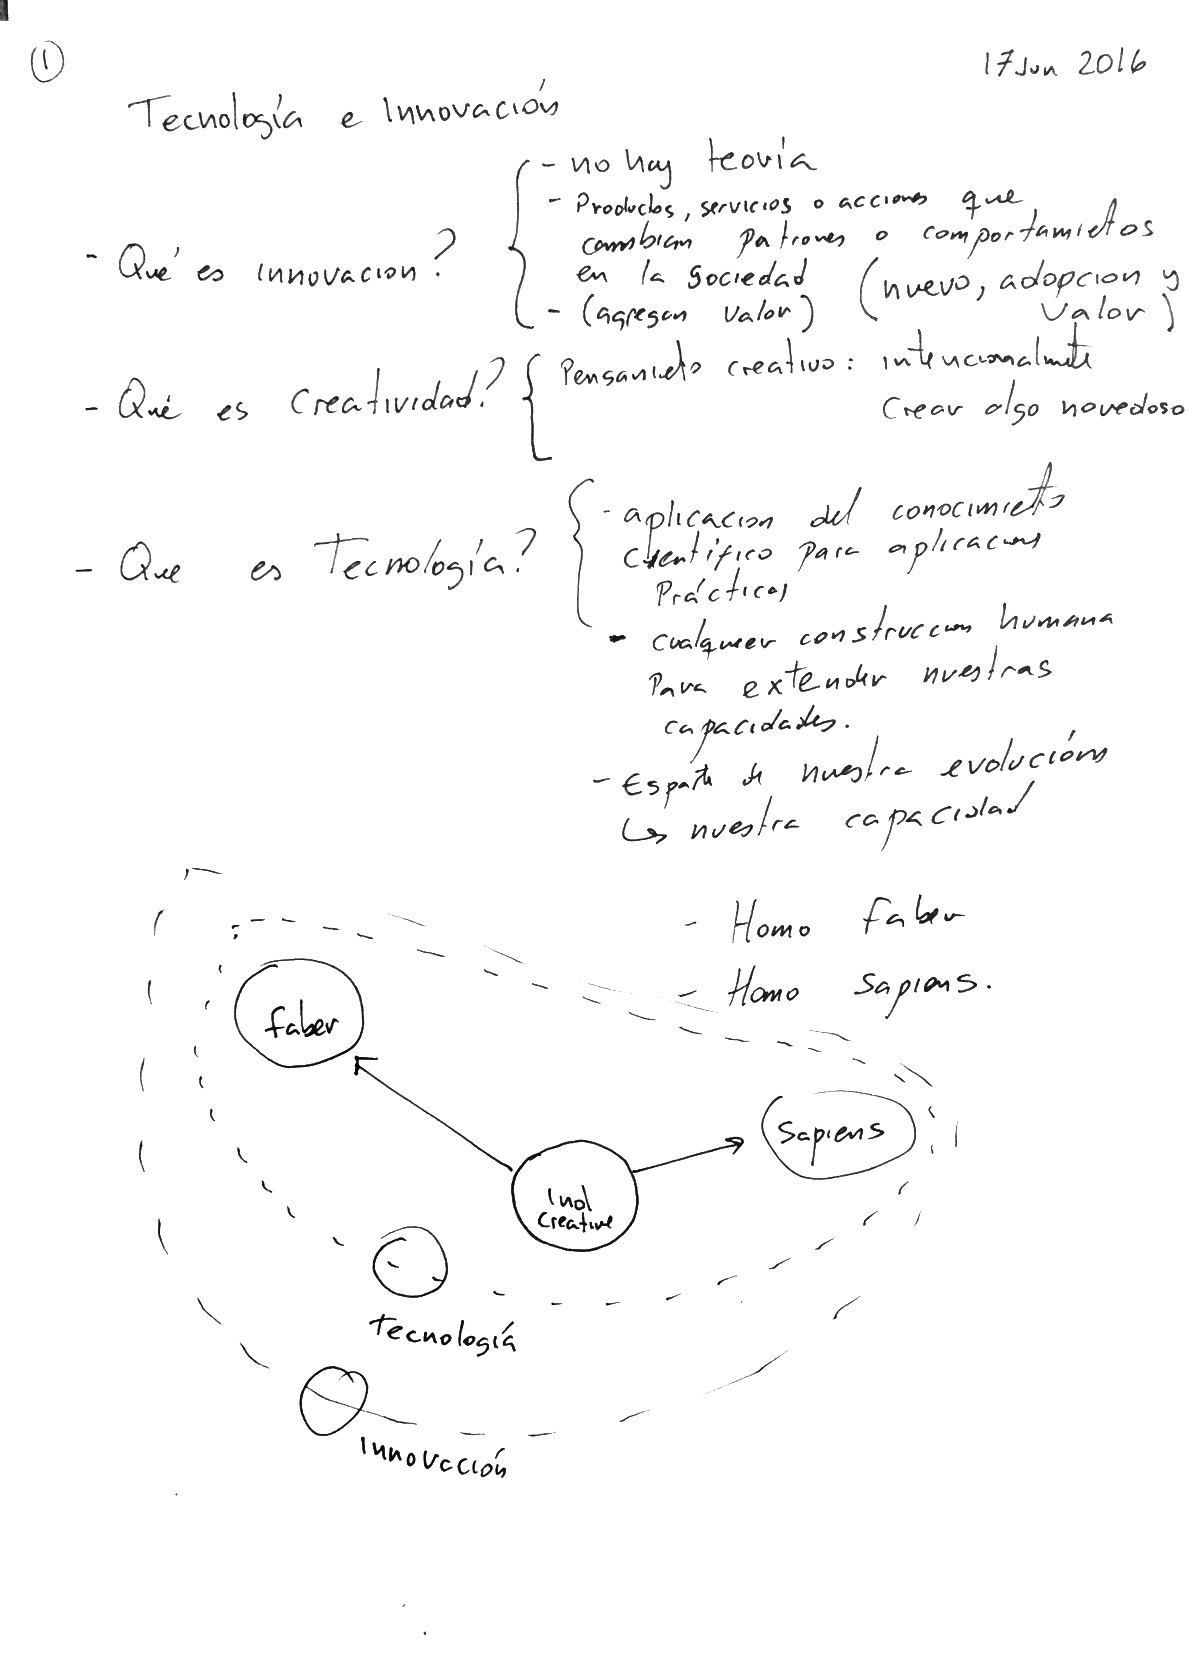 1
17 Jun 2016
Tecnología e Innovación
- Qué es innovacion?
- no hay teoría
- Productos, servicios o acciones que
cambian patrones o comportamietos
en la sociedad (nuevo, adopcion y
valor)
- (agregan valor)
- Qué es Creatividad?
Pensamieto creativo: intencionalmete
crear algo novedoso
- Que es Tecnología?
- aplicacion del conocimieto
cientifico para aplicaciones
Prácticas
- cualquier construccion humana
Para extender nuestras
capacidades.
- Es parte de nuestra evolución
↳ nuestra capacidad
- Homo faber
- Homo Sapiens.
faber
Sapiens
Ind
Creative
Tecnología
Innovación